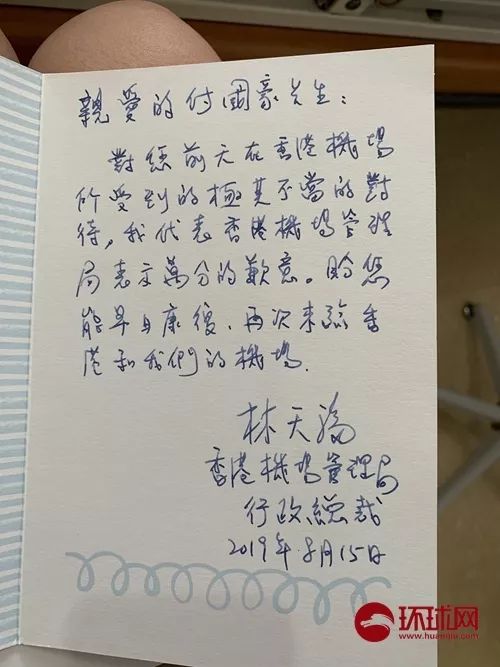 親愛的付國豪先生：
對您前天在香港機場
所受到的極其不當的對
待，我代表香港機場管理
局表示萬分的歉意。盼您
能早日康復，再次來臨香
港和我們的機場.
林天福
香港機場管理局
行政總裁
2019年8月15日
环球网
www.huanqiu.com